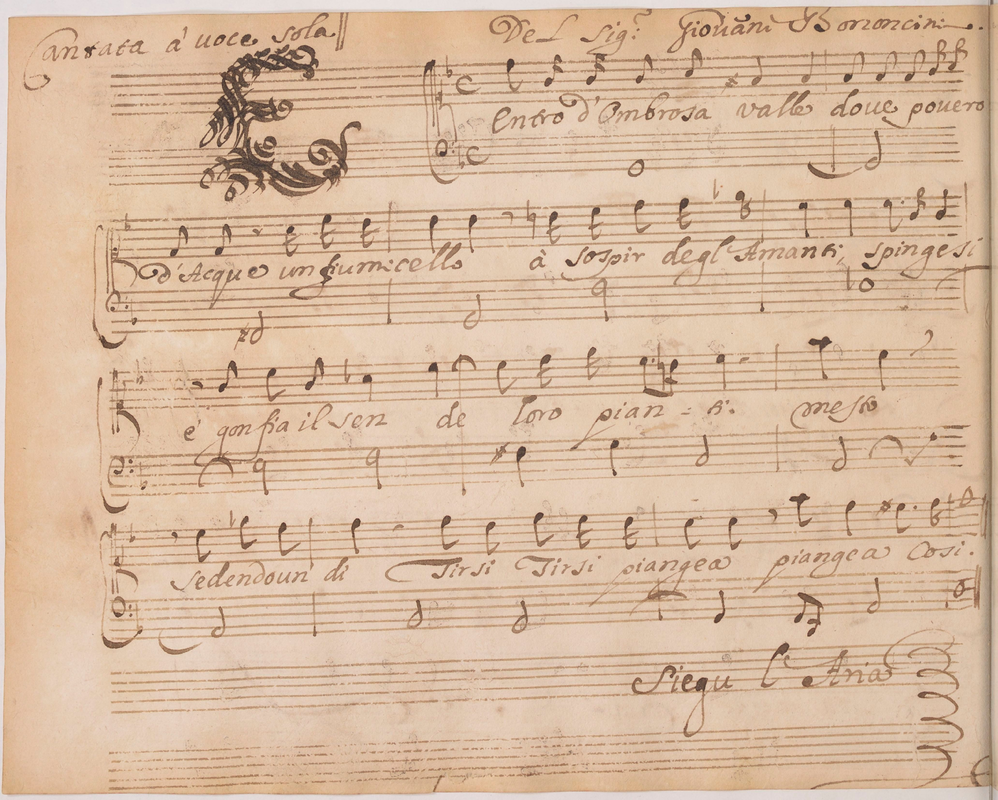 Cantata a' voce sola
Del Sig.r Giovãni Bononcini
E
Entro d'Ombrosa valle dove povero
d'Acque un fiumicello à sospir degl'Amanti, spinge si
e' gonfia il sen de loro pian - ti. mesto
sedendo un di Tirsi Tirsi piangea piangea Cosi.
Siegu l' Aria